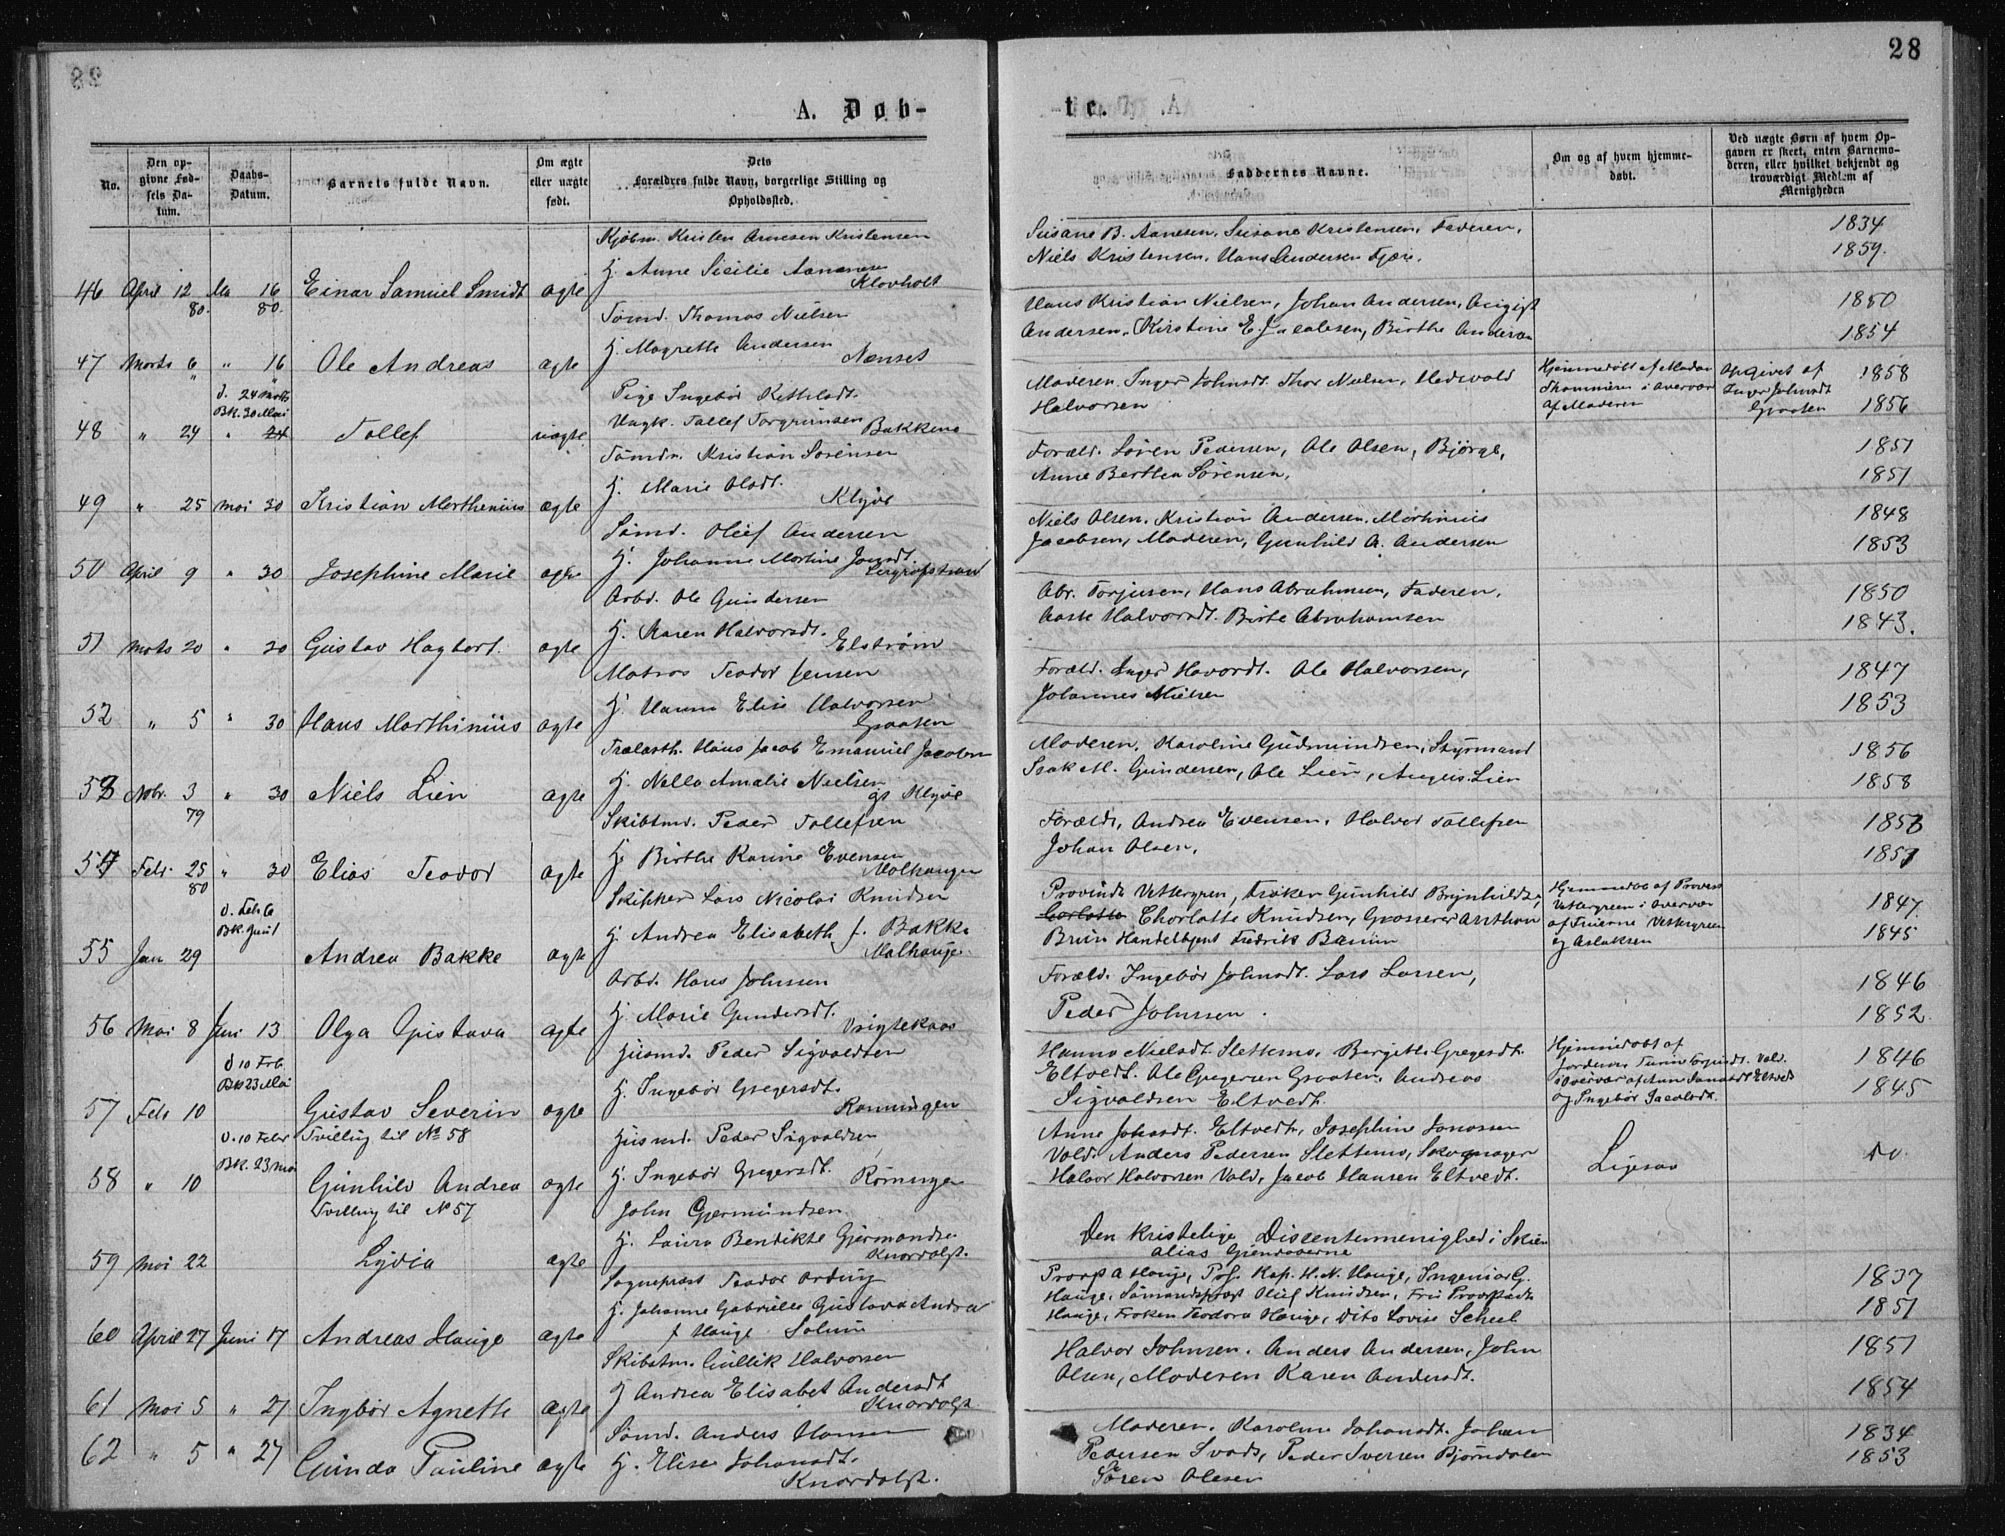 28
A. Døb-
te.
No.
Den op-
givne Fød-
sels Da-
tum.
Daabs-
Datum.
Barnets fulde Navn.
Om ægte
eller uægte
født.
Dets
Forældres fulde Navn, borgerlige Stilling og
Opholdssted.
Faddernes Navne.
Om og af hvem hjemme-
døbt.
Ved uægte Børn af hvem Op-
gaven er skeet, enten Barnemo-
deren, eller hvilket bekjendt og
troværdigt Medlem af
Menigheden
Kjøbm. Kristen Arnesen Kristensen
Susane B. Aanesen, Susane Kristensen, Faderen,
1834
Niels Kristensen, Hans Andersen Fjære.
1859.
Hj. Anne Sicilie Aanesen
46 April 12 Ma 16 Einar Samuel Smidt ægte Klovholt
80. 80.
Tømd. Thomas Nielsen
Hans Kristian Nielsen, Johan Andersen,
1850
Andersen, Kirstine E. Jacobsen, Birthe Andersen
1854
Hj. Magrethe Andersen
47 Marts 6 " 16 Ole Andreas ægte Nænset
D. 24 Marts
Bk. 30 Mai
Pige Ingebør Kittelsdt.
Moderen, Inger Johnsdt. Thor Nielsen, Hedevald
Hjemmedøbt af Madam
Opgivet af
1858
Halvorsen
i Overvær
Inger Johnsdt
af Moderen
Graaten
1856
Ungk. Tollef Torgrimsen
48 " 24 " 24 Tollef uægte Bakkene
Tømdr. Kristian Sørensen
Foræld. Søren Pedersen, Ole Olsen, Bjørge,
1851
Anne Berthea Sørensen,
1851
Hj. Marie Olsdt.
49 " 25 Mai 30 Kristian Marthenius ægte Klyve
Sømd. Oluf Andersen
Niels Olsen, Kristian Andersen, Marthinius
1848
Jacobsen, Moderen, Gunhild A. Andersen
1853
Hj. Johanne Martine
50 April 9 " 30 Josephine Marie ægte
Arbd. Ole Gundersen
Abr. Torjusen, Hans Abrahamsen, Faderen,
1850
Aaste Halvorsdt. Birte Abrahamsen
1843.
Hj. Karen Halvorsdt.
51 Marts 20 " 30 Gustav Hagbart. ægte Elstrøm
Matros Teodor Jensen
Foræld. Inger Havordt. Ole Halvorsen,
1847
Johannes Nielsen
1853
Hj. Hanne Elise Halvorsen
52 " 5 " 30 Hans Marthinius ægte Graaten
Trælasth. Hans Jacob Emanuel Jacobsen
Moderen, Karoline Gudmundsen, Styrmand
1856
Isak M. Gundersen, Ole Lien, August Lien
1858
Hj. Nella Amalie Nielsen
53 Nobr. 3 " 30 Niels Lien ægte gs Klyve
79
Skibstmd. Peder Tollefsen
Foræld, Andrea Evensen, Halvor Tollefsen
1853
Johan Olsen,
1851
Hj. Birthe Karine Evensen
54 Febr. 25 " 30 Elias Teodor ægte Molhaugen
80
D. Feb 6
Bk. Juni 1
Skipper Lars Nicolai Knudsen
Vettergren, Frøken Gunhild Brynhildsen,
Hjemmedøbt af
Charlotte Knudsen, Grosserer Anthon
Vettergreen i Overvær
1847.
Bruun Handelbjent Fredrik Bruun
af Fruerne Vettergreen
og Aslaksen
1845
Hj. Andrea Elisabeth f. Bakke
55 Jan 29 Andrea Bakke ægte Molhauge.
Arbd. Hans Johnsen
Foræld. Ingebør Johnsdt. Lars Larsen,
1846
Peder Johnsen.
1852
Hj. Marie Gundersdt.
56 Mai 8 Juni 13 Olga Gustava ægte
D 10 Feb
Bk 23 Mai
Husmd. Peder Sigvaldsen
Hanna Nielsdt. Slettemo, Birgitte Gregersdt.
Hjemmedøbt af
1846
Eltvedt, Ole Gregersen Graaten, Andreas
Jordemor
i Overvær af Anne Eltvedt
1845
Sigvaldsen Eltvedt.
og Ingebør Jacobsdt.
Hj. Ingebør Gregersdt.
57 Feb 10 Gustav Severin ægte Ronningen
Tvilling til No 58
D. 10 Febr
Bk. 23 Mai
Husmd. Peder Sigvaldsen
Anne Johnsdt. Eltvedt, Josephine Jonassen
Vold, Anders Pedersen Slettemo, Skomager
Halvor Halvorsen Vold, Jacob Hansen Eltvedt.
Ligesaa
Do.
Hj. Ingebør Gregersdt.
58 " 10 Gunhild Andrea ægte Rønningen
Tvilling til No 57
John Gjermundsen
Den kristelige Dissentermenighed i Skien
alias Frændeerne
Hj. Laura Bendikte Gjermundsen
59 Mai 22 Lydia ægte Knardalst.
Sognepræst Teodor Arding
Provst A Hauge, Pers. Kap. H. N. Hauge, Ingeniør G.
1837
Hauge, Sømandspræst Oluf Knudsen, Fru Provstinde
Hauge, Frøken Teodora Hauge, Dito Lovise Scheel
1851
Hj. Johanne Gabrielle Gustava Andrea
60 April 27 Juni 17 Andreas Hauge ægte f Hauge Solum
Skibstm. Gullik Halvorsen
Halvor Johnsen, Anders Andersen, John
1851
Olsen, Moderen Karen Andersdt.
1854
Hj Andrea Elisabet Andersdt
61 Mai 5 " 27 Ingbør Agnette ægte Knardalst
Sømd. Anders Hansen
Moderen, Karoline Johansdt. Johan
1834
62 " 5 " 27 Gunda Pauline ægte Hj. Elise Johansdt.
Pedersen Svads, Peder Iversen Bjørndalen
1853
Knardalst.
Søren Olesen